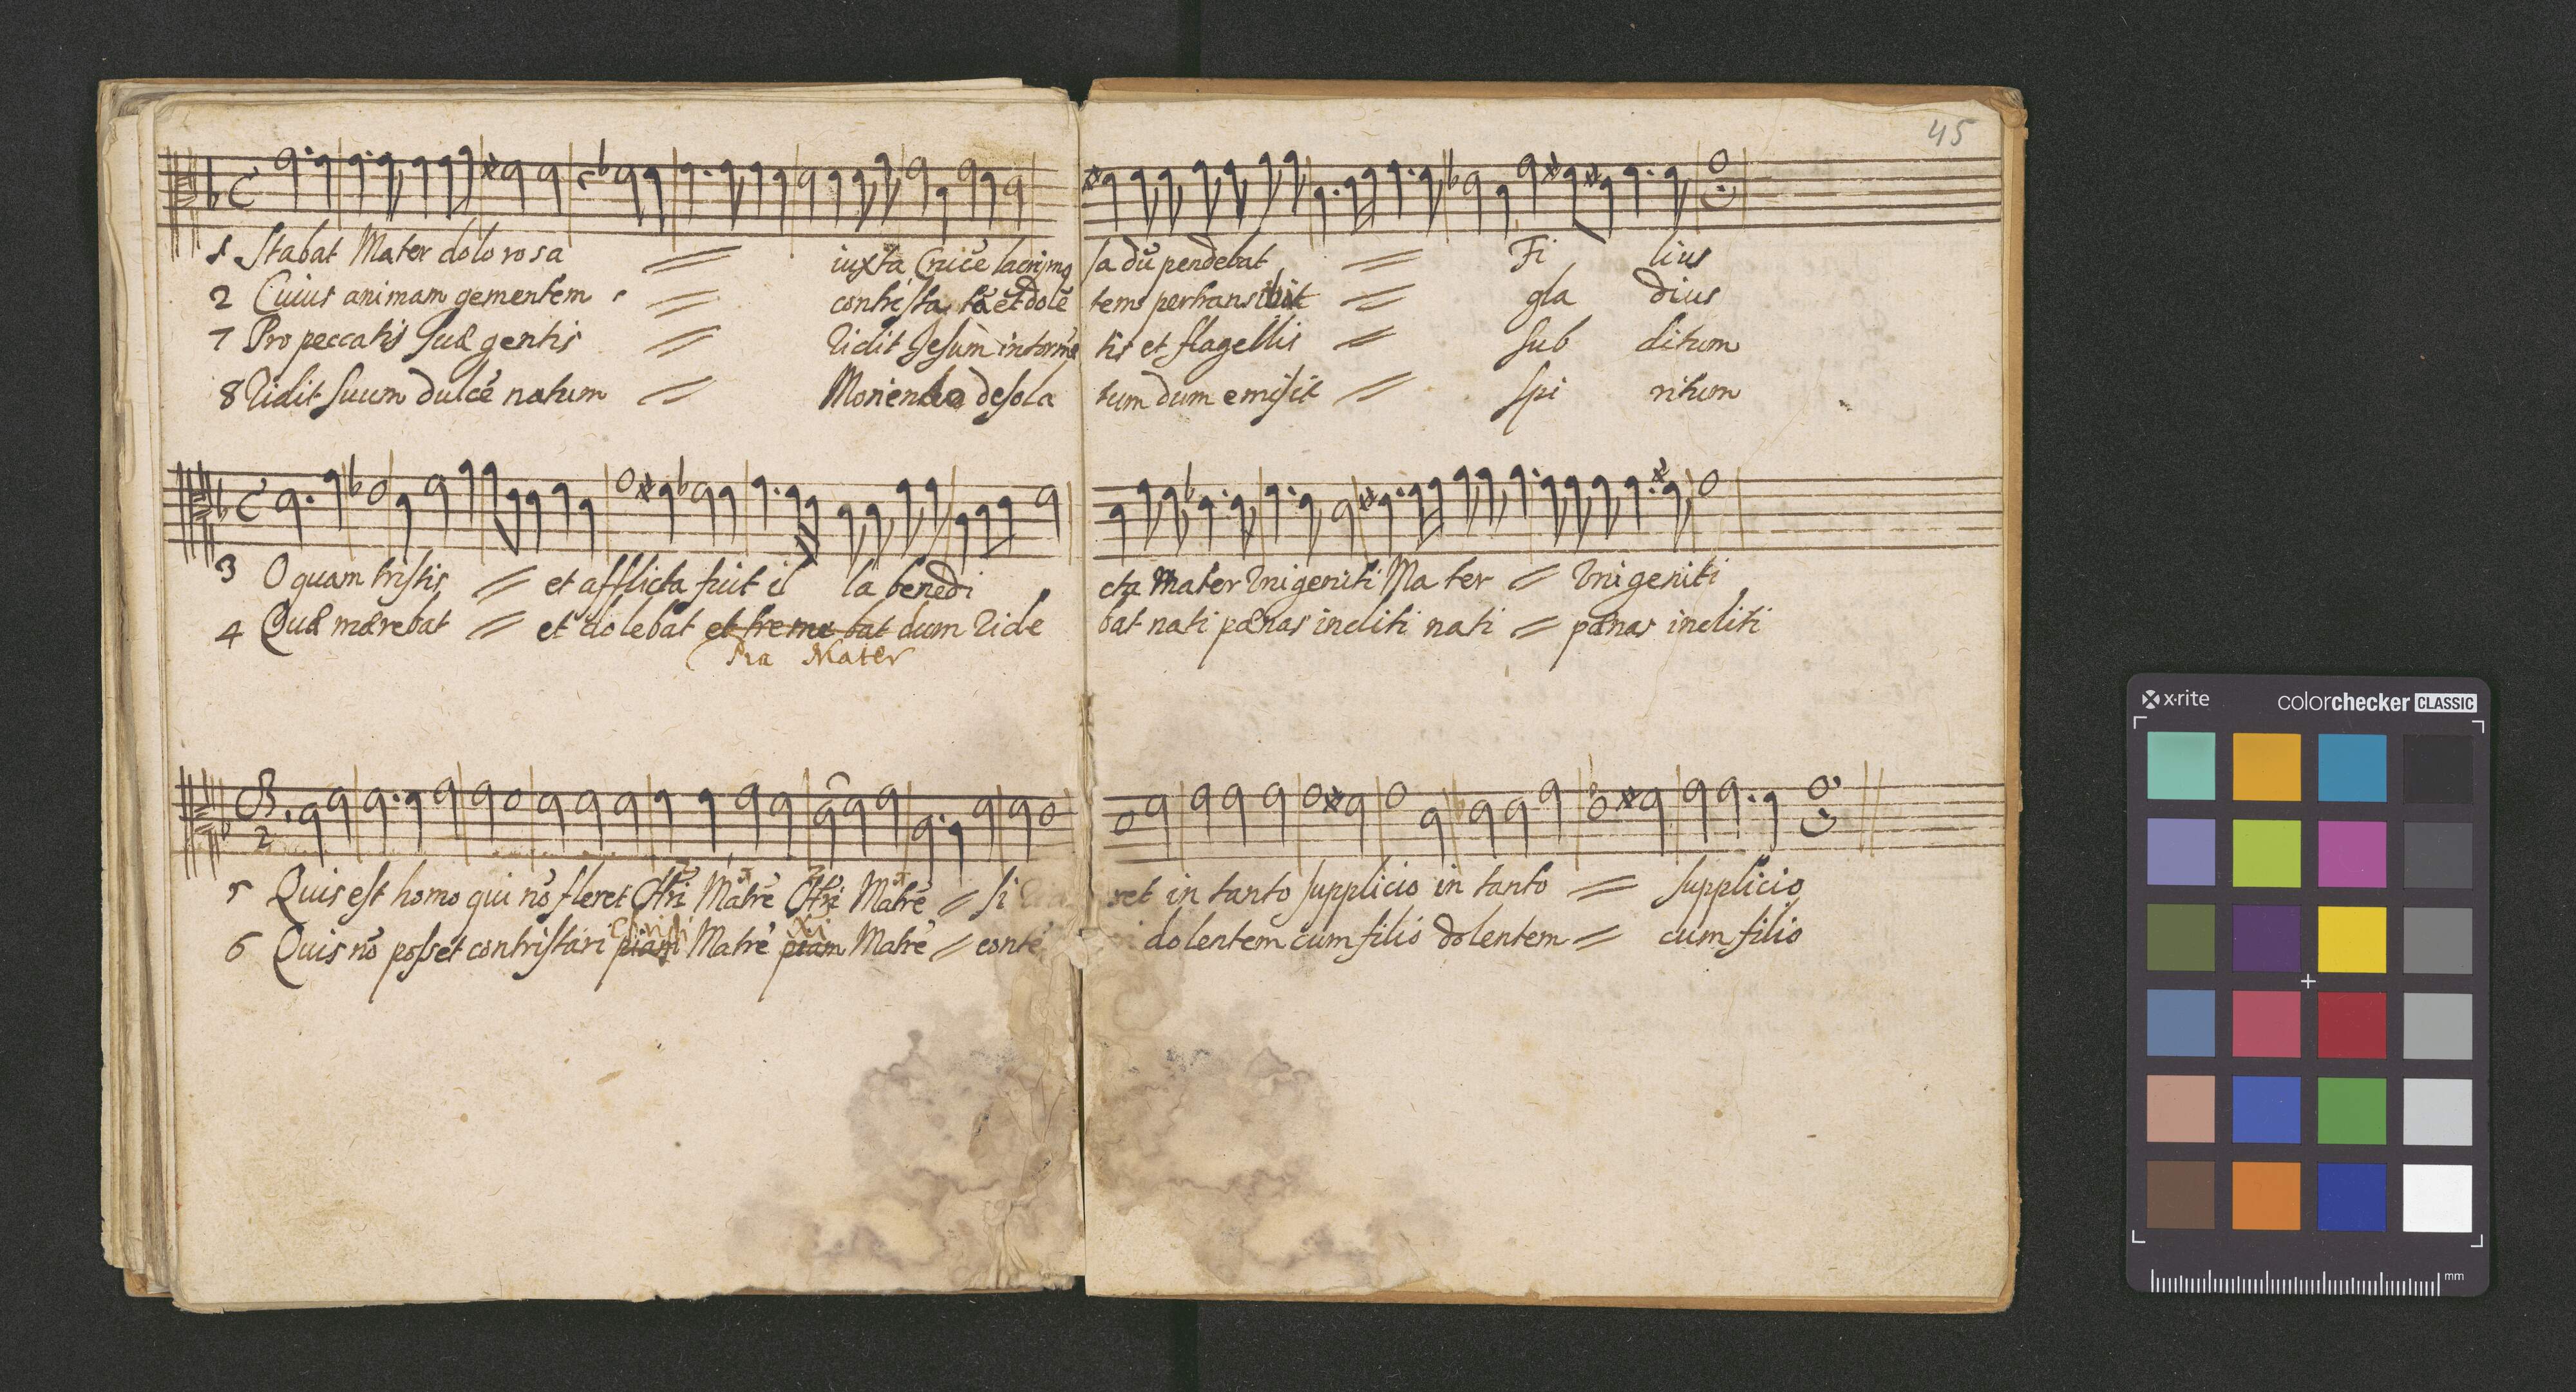 45
1 Stabat Mater dolorosa = iuxta Crucẽ lacrimo sa dũ pendebat = Fi lius
2 Cuius animam gementem = contrista tã et dolẽ tem pertransibit = gla dius
7 Pro peccatis suæ gentis = Vidit Jesum in tormẽ tis et flagellis = sub ditum
8 Vidit suum dulcẽ natum = Moriendo desola tum dum emisit = spi ritum
3 O quam tristis = et afflicta fuit il la benedi cta Mater Unigeniti Ma ter = Unigeniti
4 Quæ mærebat = et dolebat et treme bat dum Vide bat nati pænas incliti nati = pænas incliti
Pia Mater
5 Quis est homo qui nõ fleret Matrẽ Matrẽ = si ret in tanto supplicio in tanto = supplicio
Christi Xi
6 Quis nõ posset contristari piam Matrẽ piam Matrẽ = contẽ dolentem cum filio dolentem = cum filio
x·rite colorchecker CLASSIC
mm